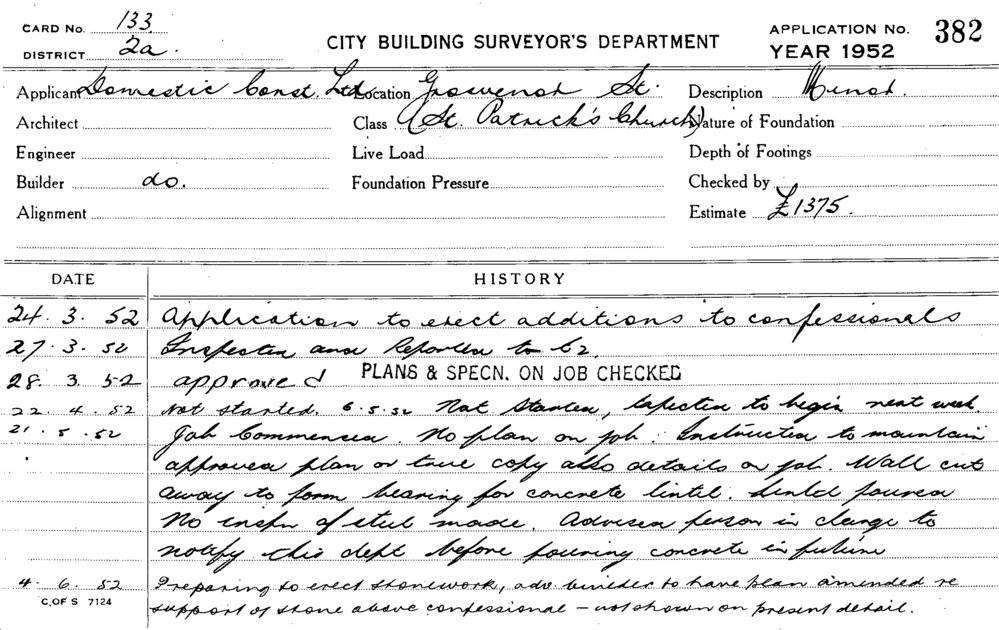 CARD NO. 133
DISTRICT 2a.
CITY BUILDING SURVEYOR'S DEPARTMENT
APPLICATION NO. 382
YEAR 1952
Applicant Domestic Const. Ltd. Location Grosvenor St. Description Minor.
Architect Class (St. Patrick's Church) Nature of Foundation
Engineer Live Load Depth of Footings
Builder do. Foundation Pressure Checked by
Alignment Estimate £1375.
DATE HISTORY
24.3.52 Application to erect additions to confessionals
27.3.52 Inspected and Reported to C2.
28.3.52 approved PLANS & SPECN. ON JOB CHECKED
22.4.52 Not started. 6.5.52 Not Started, Expected to begin next week
21.5.52 Job Commenced. No plan on job. Instructed to maintain
approved plan or true copy also details on job. Wall cut
away to form bearing for concrete lintel. Lintel poured
No inspn of steel made. Advised person in charge to
notify this dept before pouring concrete in future
4.6.52 Preparing to erect stonework, adv. builder to have plan amended re
C. OF S 7124 support of stone above confessional – not shown on present detail.